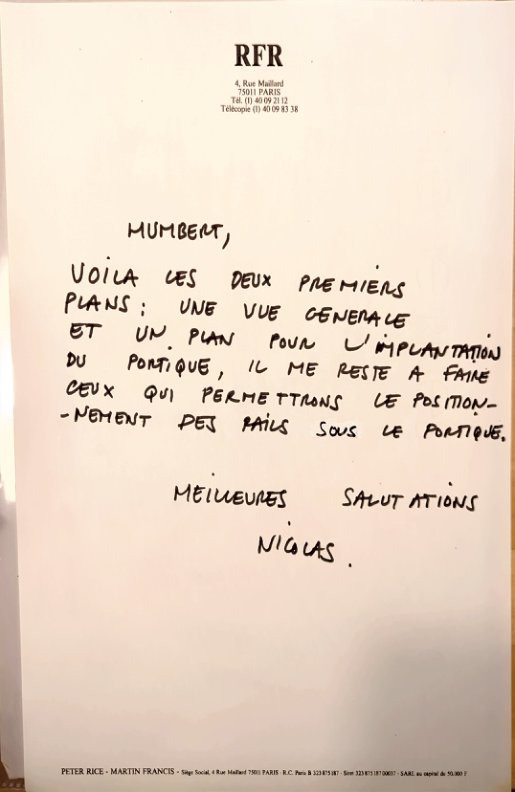 RFR
4, Rue Maillard
75011 PARIS
Tél. (1) 40 09 21 12
Télécopie (1) 40 09 83 38
HUMBERT,
VOILA LES DEUX PREMIERS
PLANS : UNE VUE GENERALE
ET UN PLAN POUR L'IMPLANTATION
DU PORTIQUE, IL ME RESTE A FAIRE
CEUX QUI PERMETTRONS LE POSITION-
-NEMENT DES RAILS SOUS LE PORTIQUE.
MEILLEURES SALUTATIONS
NICOLAS.
PETER RICE - MARTIN FRANCIS - Siège Social, 4 Rue Maillard 75011 PARIS - R.C. Paris B 323 875 187 - Siret 323 875 187 00037 - SARL au capital de 50.000 F